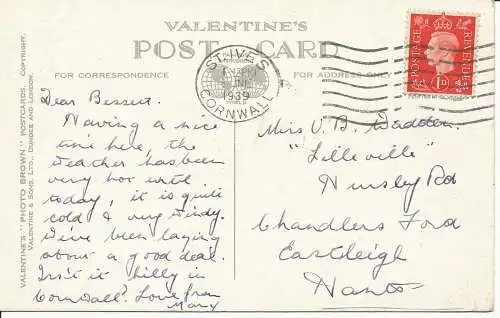 VALENTINE'S
POST CARD
FOR CORRESPONDENCE
FOR ADDRESS ONLY
ST. IVES
1939
CORNWALL
POSTAGE
REVENUE
1D
VALENTINE'S "PHOTO BROWN" POSTCARDS. COPYRIGHT.
VALENTINE & SONS. LTD., DUNDEE AND LONDON.
Dear Bessect.
Having a nice
time here, the
weather has been
very hot until
today, it is quite
cold & very windy.
I've been lazing
about a good deal.
Isn't it hilly in
Cornwall? Love from
Mary
Miss V. B.
"Lilleville"
Rd
Chandlers Ford
Eastleigh
Hants